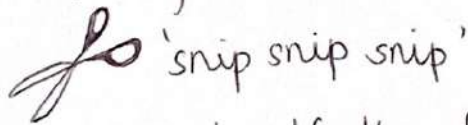 'snip snip snip'